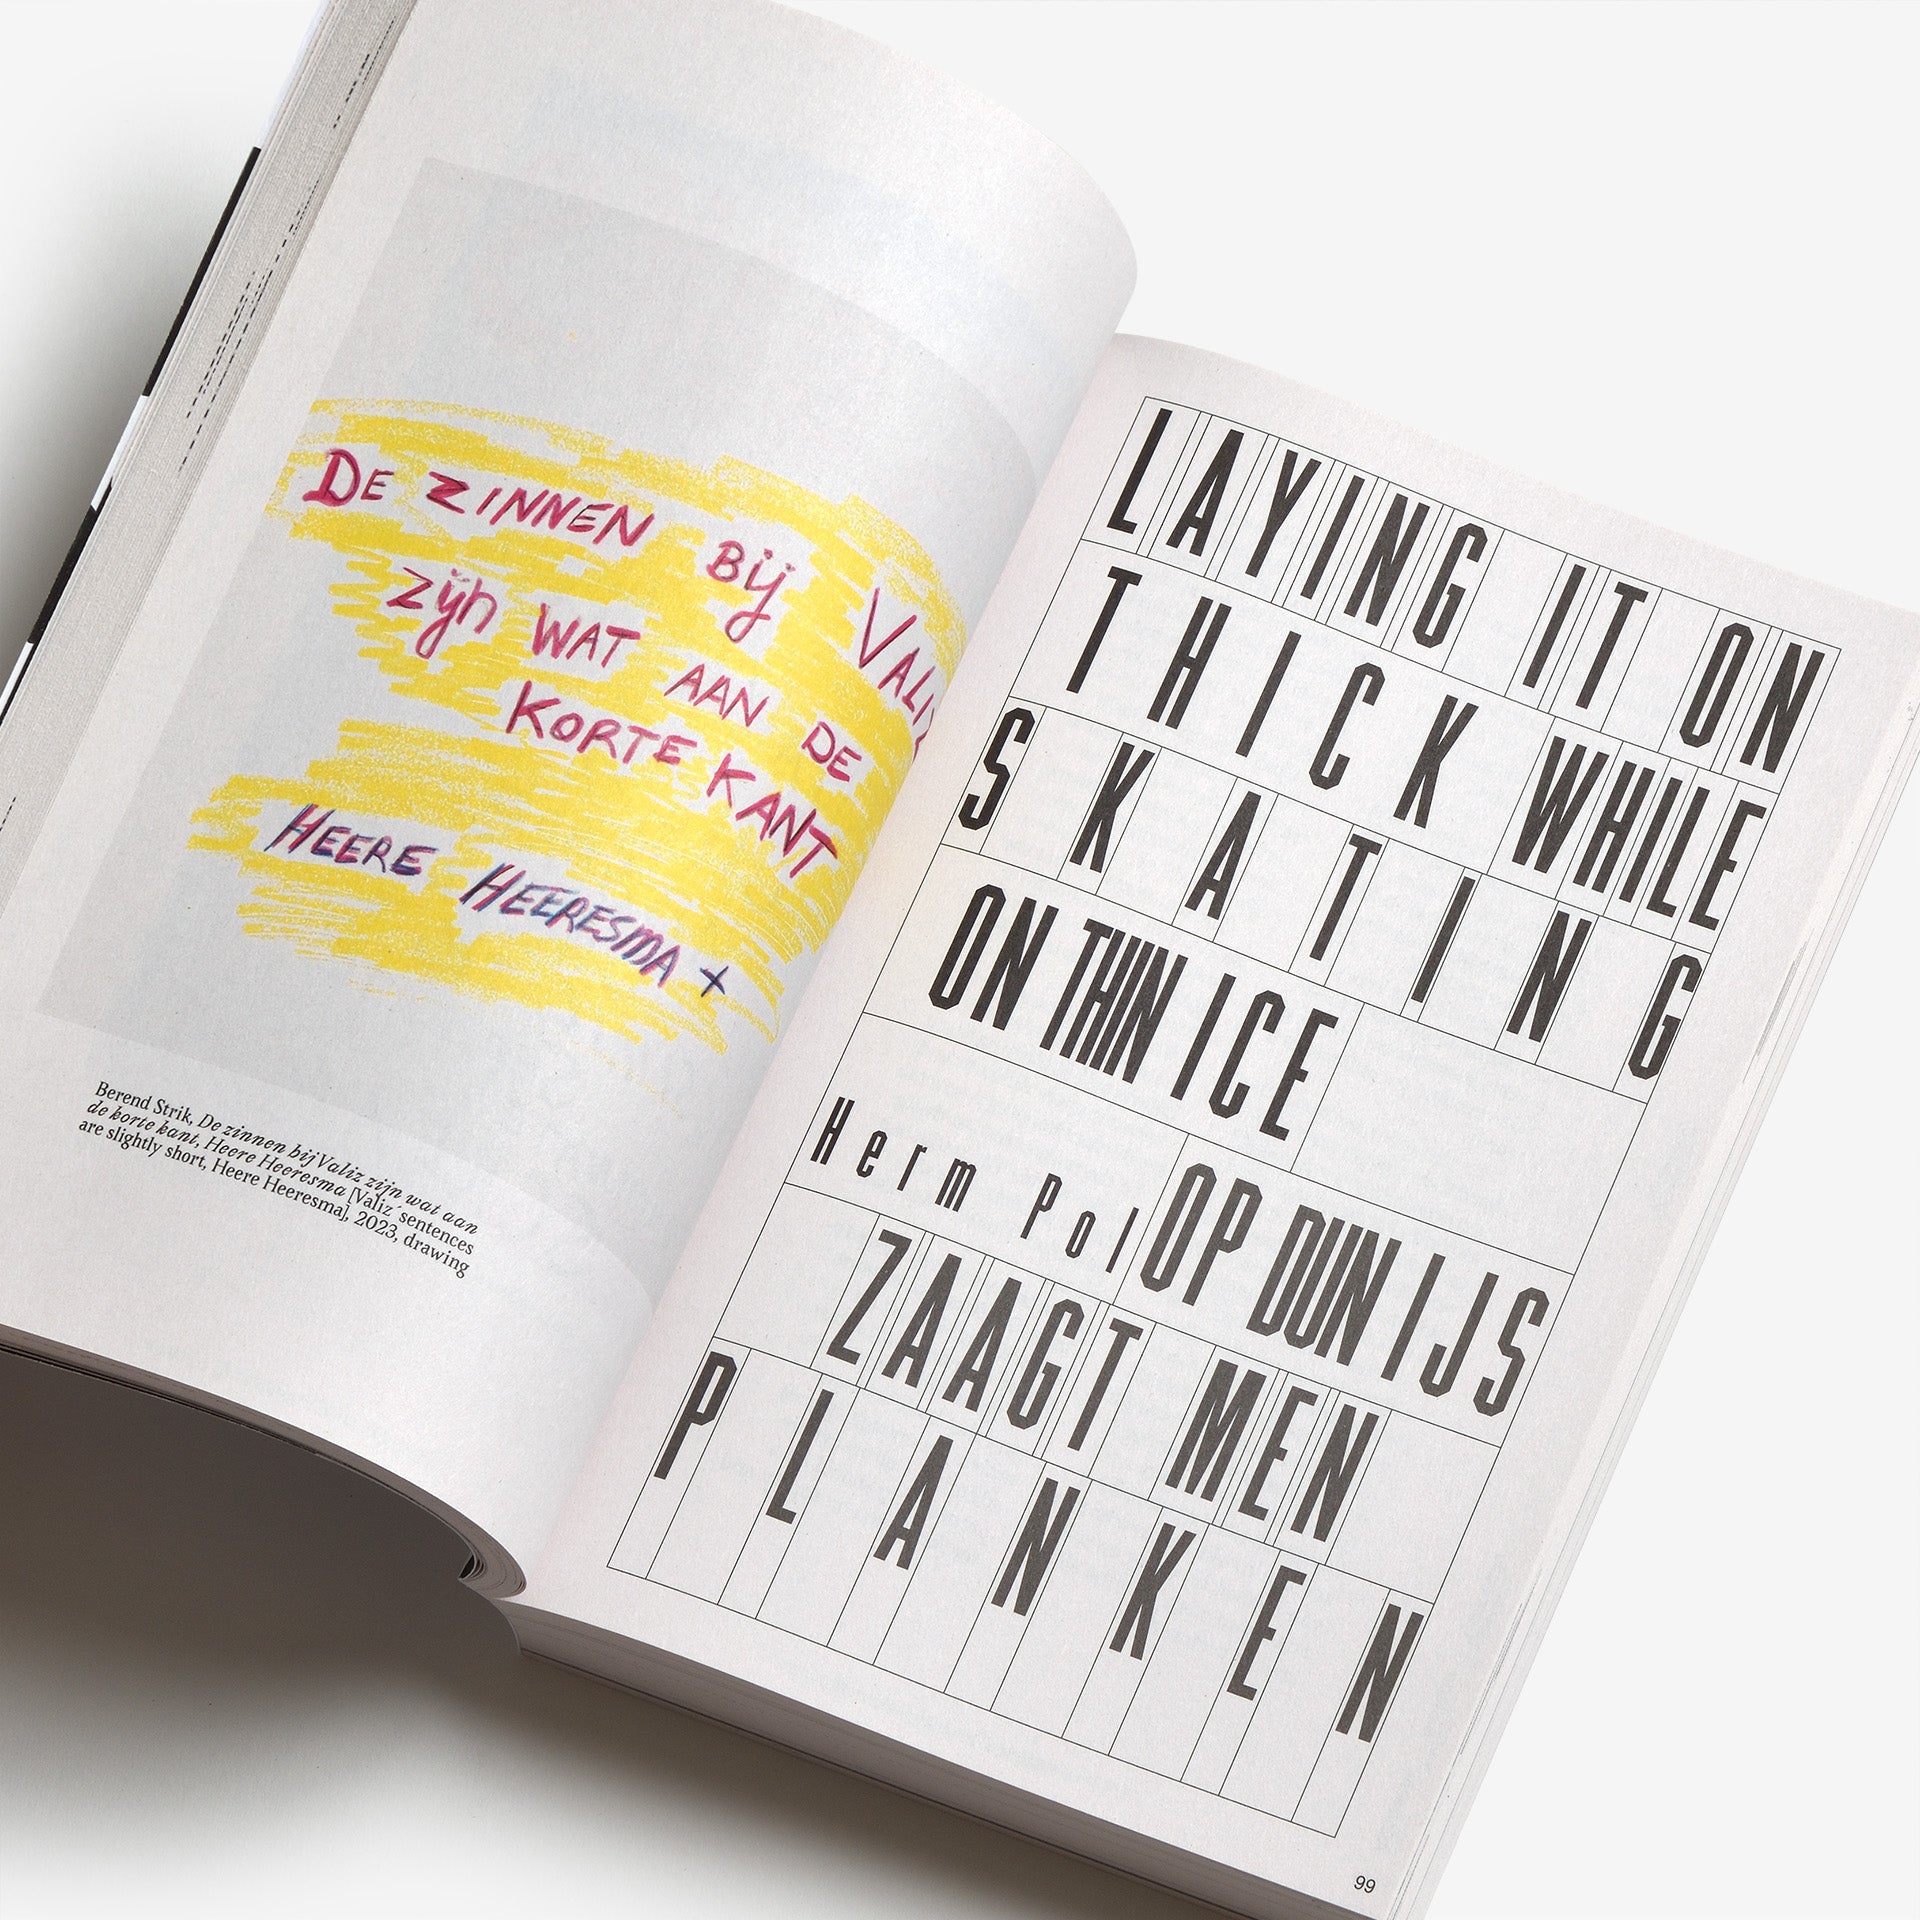 DE ZINNEN BIJ
ZIJN WAT AAN DE
KORTE KANT
HEERE HEERESMA +
Berend Strik, De zinnen bij Valiz zijn wat aan
de korte kant, Heere Heeresma [Valiz´sentences
are slightly short, Heere Heeresma], 2023, drawing
LAYING IT ON
THICK WHILE
SKATING
ON THIN ICE
Herm Pol
OP DUN IJS
ZAAGT MEN
PLANKEN
99